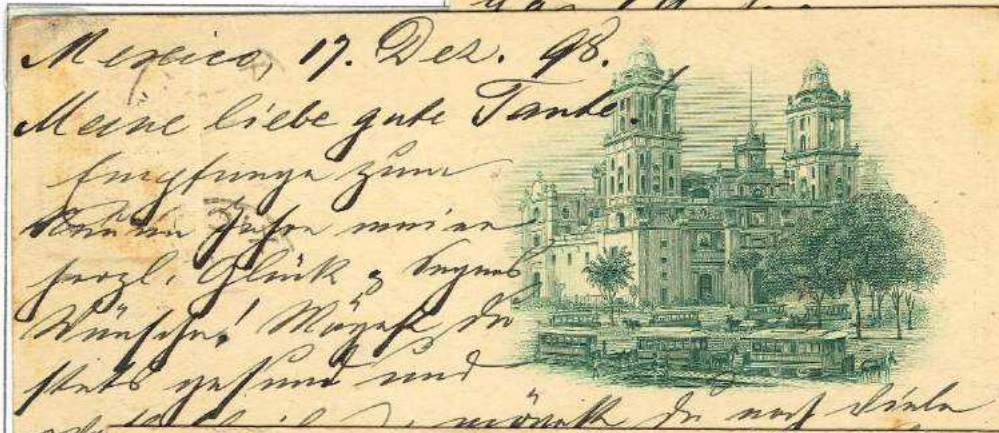 Mexico, 17. Dez. 98.
Meine liebe gute Tante!
Empfange zum
Neuen Jahre meine
herzl. Glück & Segens
Wünsche! Mögest du
stets gesund und
möchtest du noch viele